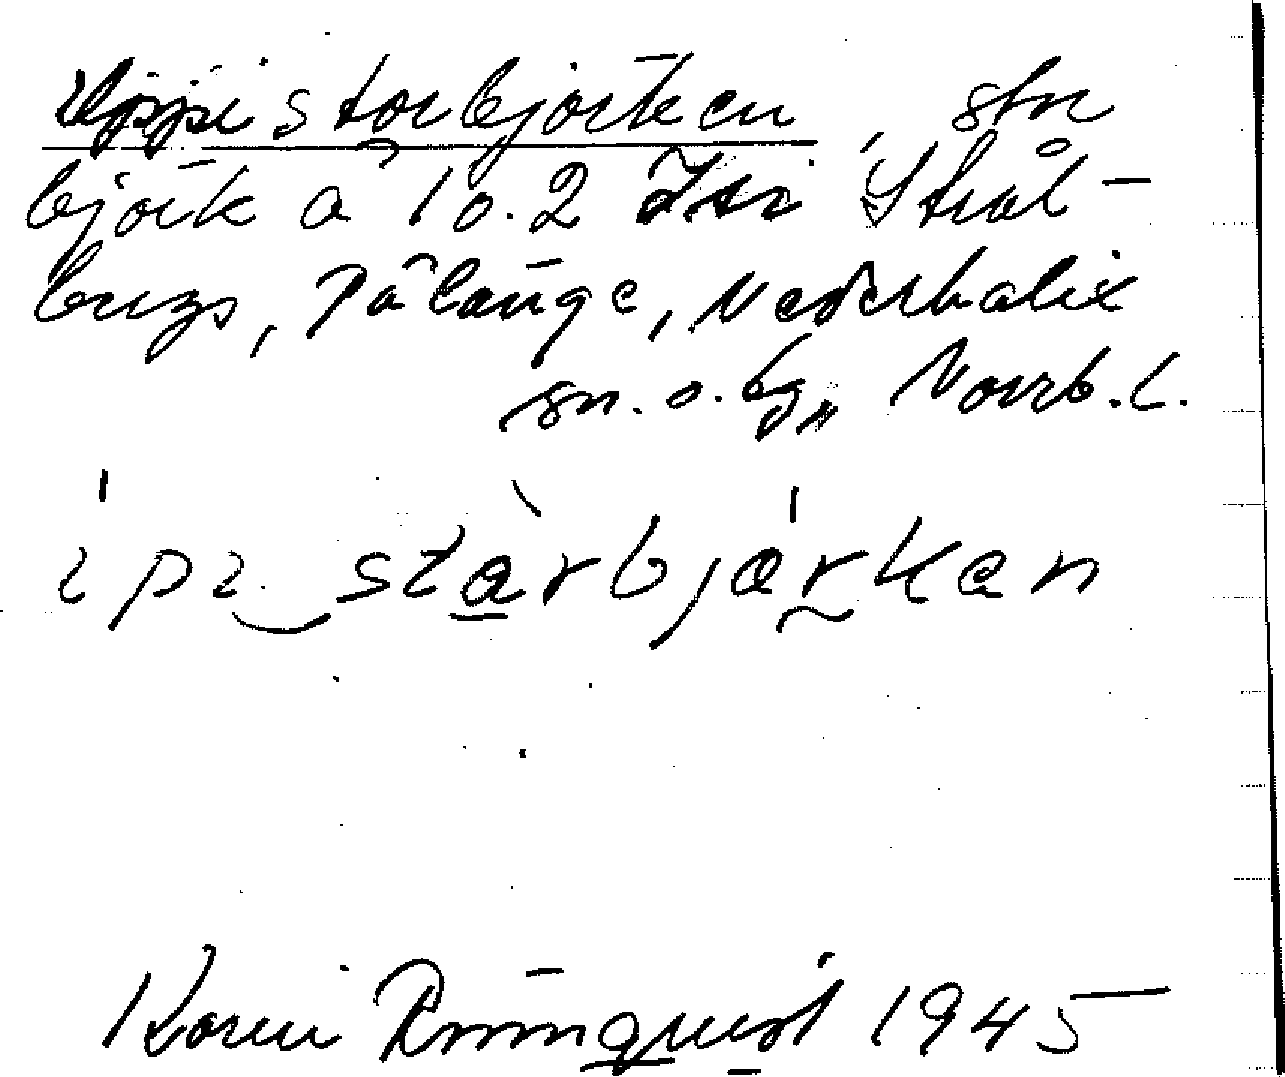 Uppi storbjörken, stor
björk å 1o.2 Itr Strål-
bergs, Pålänge, Nederkalix
sn. o. tg., Norrb. l.
ipi storbjørkan
Karin Rönnquist 1945